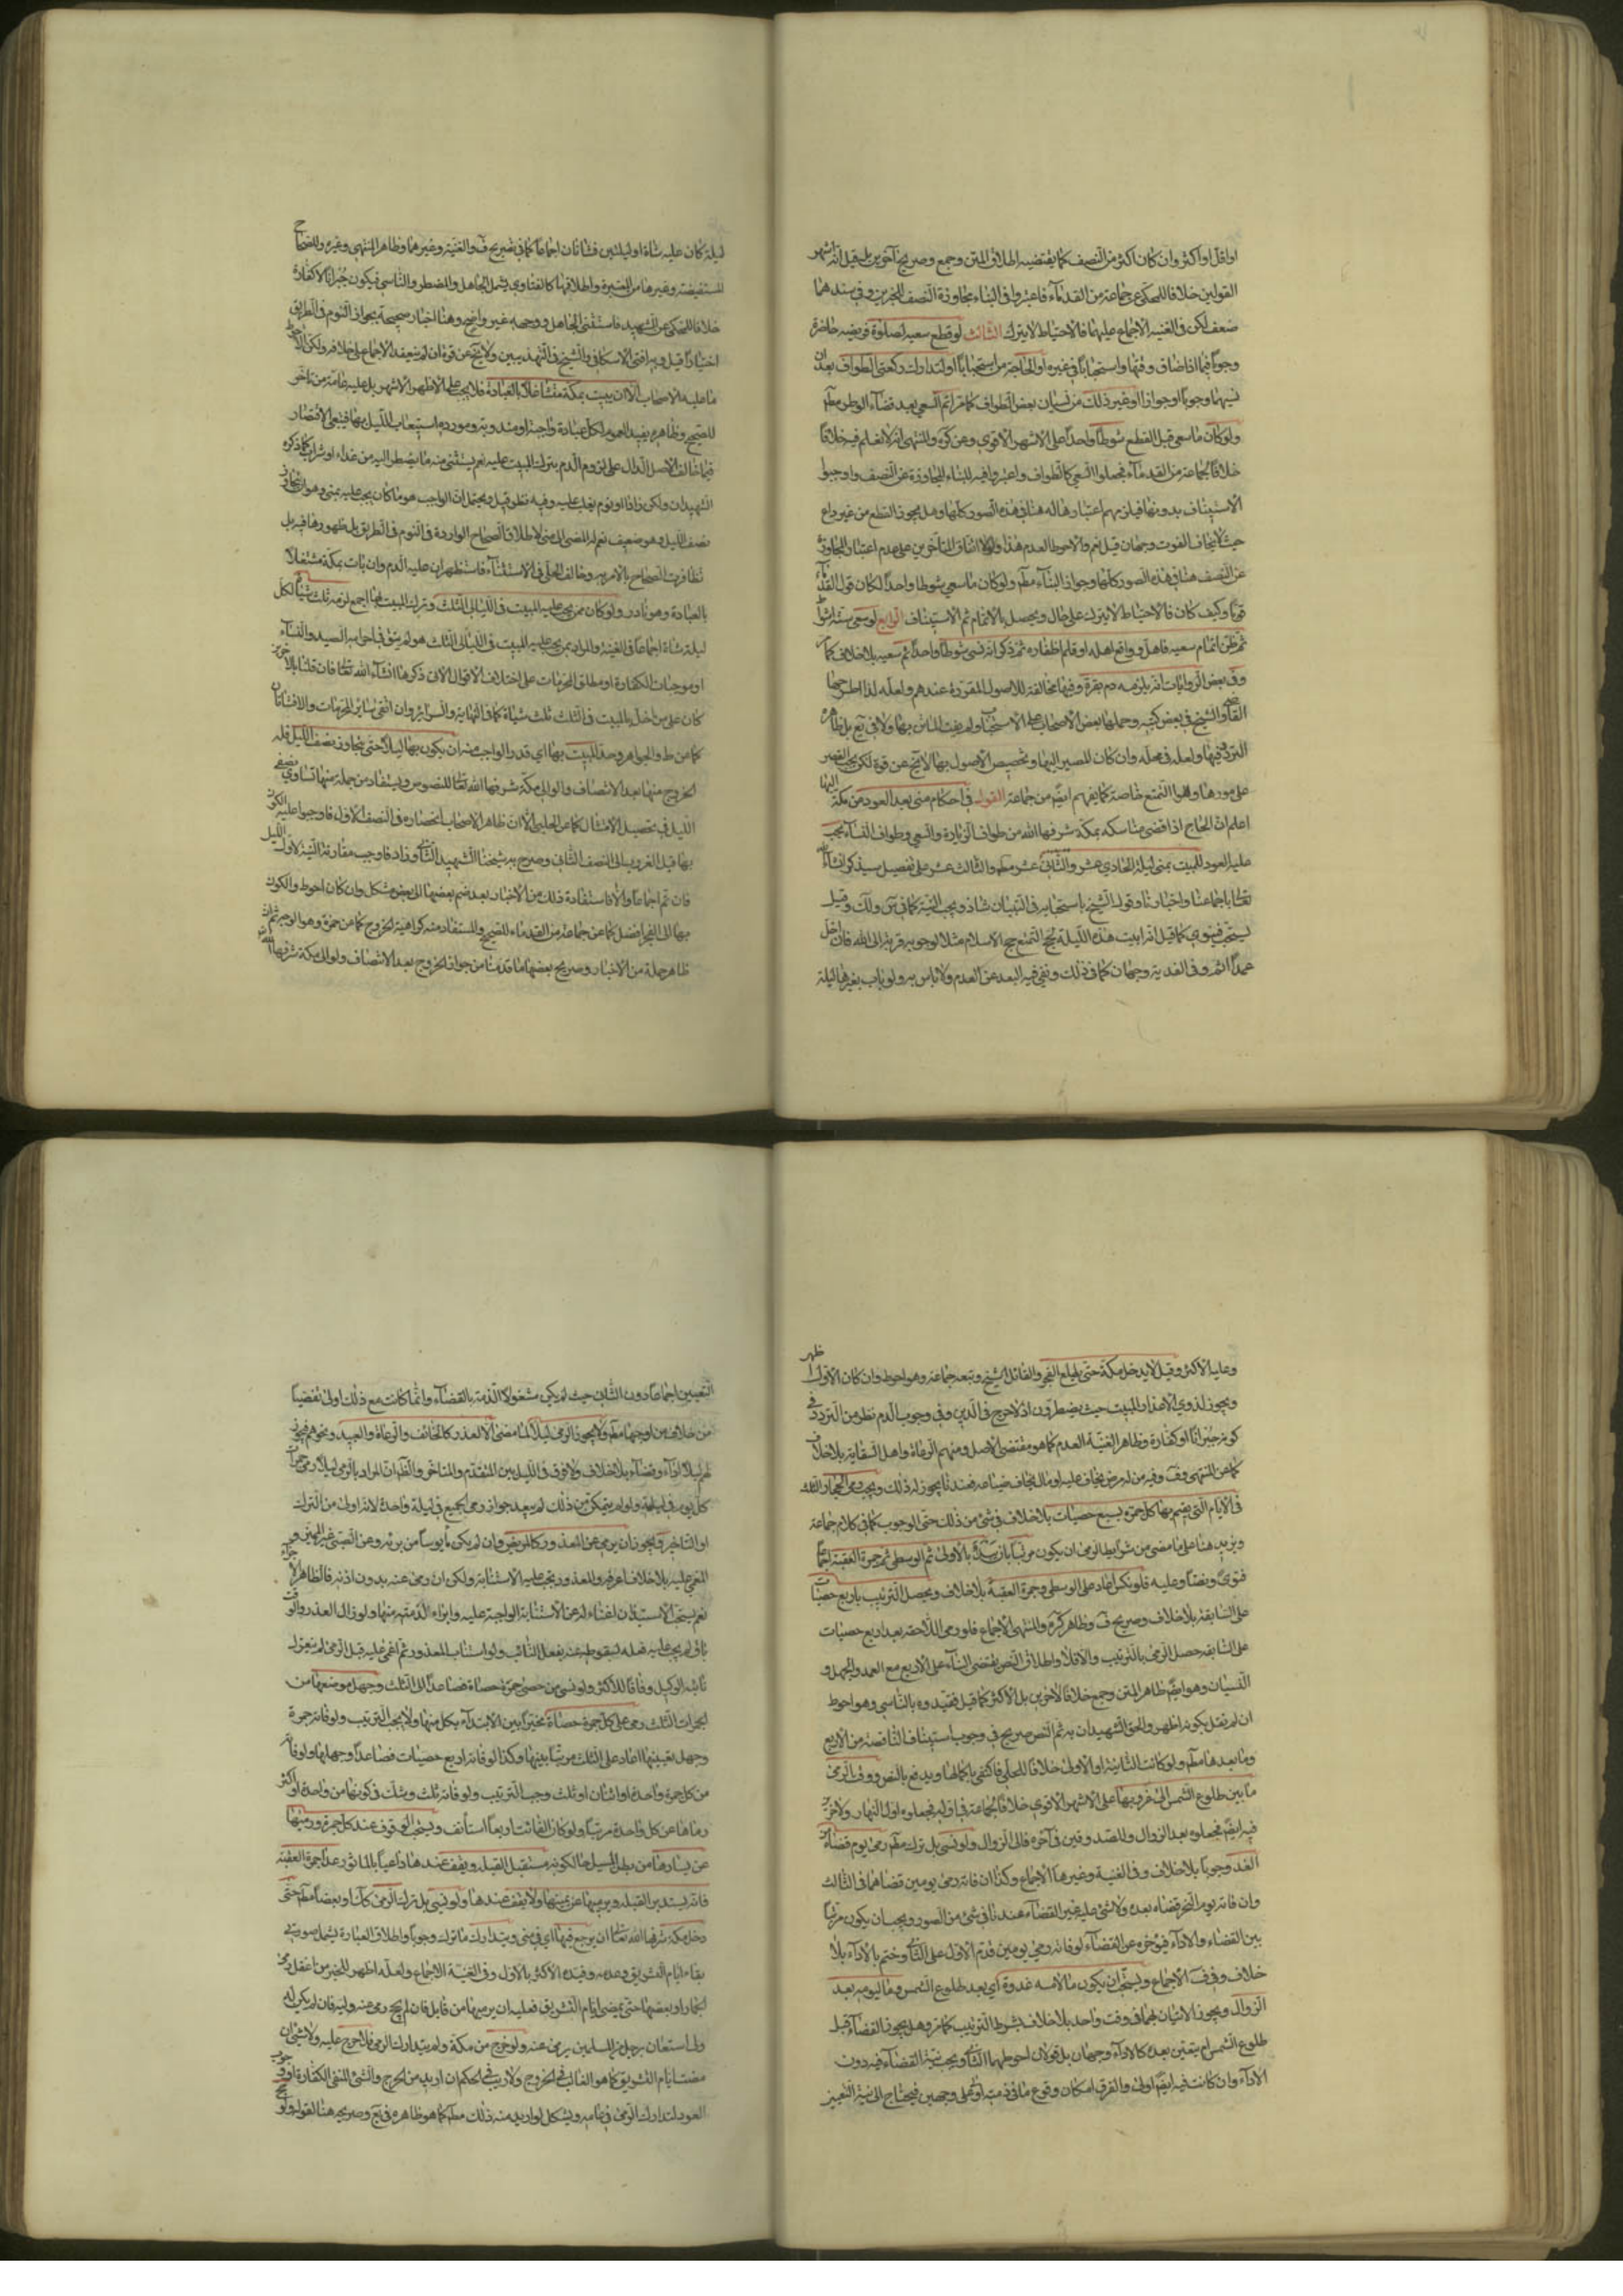 اواقل او اكثر وان كان اكثر من النصف كما يقتضيه اطلاق المتن وجمع وصريح آخرين بل قيل انه اشهر
القولين خلافا للمحكي عن جماعة من القدماء فاعتبروا في البناء مجاوزة النصف للخبرين وفي سندهما
ضعف لكن في الغنيه الاجماع عليهما فالاحتياط لا يترك الثالث لو قطع سعيه لصلوة فريضه حاضرة
وجوبا فيما اذا ضاق وقتها واستحبابا في غيره او لحاجة من استحبابا او لتدارك ركعتي الطواف بعد ان
نسيهما وجوبا او جوازا او غير ذلك من نسيان بعض الطواف كما مر اتم السعي بعد قضاء الوطر مطم
ولو كان ما سعي قبل القطع شوطا واحدا على الاشهر الاقوى وعن كره والمنتهى انه لا نعلم فيه خلافا
خلافا لجماعة من القدماء فجعلوا السعي كالطواف واعتبروا فيه للبناء المجاوزة عن النصف واوجبوا
الاستيناف بدونها فيلزمهم اعتبارها له هنا في هذه الصور كلها وهل يجوز القطع من غير داع
حيث لا يخاف الفوت وجهان قيل نعم والاحوط العدم هذا ولولا اتفاق المتأخرين على عدم اعتبار المجاوزة
عن النصف هنا في هذه الصور كلها وجواز البناء مطم ولو كان ما سعي شوطا واحدا لكان قول القدماء
قويا وكيف كان فالاحتياط لا يترك على حال ويحصل بالاتمام ثم الاستيناف الرابع لو سعى ستة اشواط
ثم ظن اتمام سعيه فاحل وواقع اهله او قلم اظفاره ثم ذكر انه نسي شوطا واحدا اتم سعيه بلا خلاف كما
وفي بعض الروايات انه يلزمه دم بقرة وفيها مخالفة للاصول المقررة عندهم ولعله لذا اطرحها
القاضي والشيخ في بعض كتبه وحملها بعض الاصحاب على الاستحباب ولم يفت الماتن بها ولا في يع بل ظاهره
التردد فيها ولعله في محله وان كان المصير اليها وتخصيص الاصول بها لا يخ عن قوة لكن يجب القصر
على موردها وهو المتمتع خاصة كما يفهم ايضم من جماعة القول في احكام منى بعد العود من مكة اليها
اعلم ان الحاج اذا قضى مناسكه بمكة شرفها الله من طواف الزيارة والسعي وطواف النساء يجب
عليه العود للمبيت بمنى ليلة الحادي عشر والثاني عشر مطم والثالث عشر على تفصيل سيذكر انشاء الله
تعالى باجماعنا واخبارنا وقول الشيخ باستحبابه في التبيان شاذ ويجب النية كما في س ولك وقيل
يستحب فينوي كما قيل انه ابيت هذه الليلة بحج التمتع حج الاسلام مثلا لوجوبه قربة الى الله فان اخل
عمدا اثم وفي الفدية وجهان كما في ذلك ونفي فيه البعد عن العدم ولا باس به ولو بات بغيرها ليلة
ليلة كان عليه شاة او ليلتين فشاتان اجماعا كما في صريح ف والغنية وغيرهما وظاهر المنتهى وغيره وللصحاح
المستفيضة وغيرها من المعتبرة واطلاقها كالفتاوى يشمل الجاهل والمضطر والناسي فيكون جبرانا لا كفارة
خلافا للمحكي عن الشهيد فاستثنى الجاهل ووجهه غير واضح وهنا اخبار صحيحة بجواز النوم في الطريق
اختيارا قيل وبه افتى الاسكافي والشيخ في التهذيبين ولا يخ عن قوة ان لم ينعقد الاجماع على خلافه ولكن الاحوط
ما عليه الاصحاب الا ان يبيت بمكة متشاغلا بالعبادة فلا يجب على الاظهر الاشهر بل عليه عامة من تاخر
للصحيح وظاهره يفيد العموم لكل عبادة واجبة او مندوبة ومورده استيعاب الليل بها فينبغي الاقتصار
فيما خالف الاصل الدال على لزوم الدم بترك المبيت عليه نعم يستثنى منه ما يضطر اليه من غذاء او شراب كما ذكره
الشهيدان ولكن زادا او نوم يغلب عليه وفيه نظر قيل ويحتمل ان الواجب هو ما كان يجب عليه بمنى وهو ان يتجاوز
نصف الليل وهو ضعيف نعم له المضي الى منى لاطلاق الصحاح الواردة في النوم في الطريق بل ظهورها فيه بل
تظافرت الصحاح بالامر به وخالف الحلي في الاستثناء فاستظهر ان عليه الدم وان بات بمكة مشتغلا
بالعبادة وهو نادر ولو كان ممن يجب عليه المبيت في الليالي الثلث وترك المبيت بها اجمع لزمه ثلث شياه لكل
ليلة شاة اجماعا في الغنية والمراد بمن يجب عليه المبيت في الليالي الثلث هو لم يتق في احرامه الصيد والنساء
او موجبات الكفارة او مطلق المحرمات على اختلاف الاقوال الاتي ذكرها انشاء الله تعالى فان قلنا بالاخير
كان على من اخل بالمبيت في الثلث ثلث شياه كما في النهاية والسرائر وان اتقى سائر المحرمات والا فشاتان
كما عن ط والجواهر وحد المبيت بها اي قدر الواجب منه ان يكون بها ليلا حتى يتجاوز نصف الليل فله
الخروج منها بعد الانتصاف ولو الى مكة شرفها الله تعالى للنصوص ويستفاد من جملة منها تساوي نصفي
الليل في تحصيل الامتثال كما عن الحلبي الا ان ظاهر الاصحاب انحصاره في النصف الاول فاوجبوا عليه الكون
بها قبل الغروب الى النصف الثاني وصرح به شيخنا الشهيد الثاني وزاد فاوجب مقارنة النية لاول الليل
فان تم اجماعا والا فاستفادة ذلك من الاخبار بعد ضم بعضها الى بعض مشكل وان كان احوط والكون
بها الى الفجر افضل كما عن جماعة من القدماء للصحيح والمستفاد منه كراهية الخروج كما عن حمزة وهو الوجه ثم ان
ظاهر جملة من الاخبار وصريح بعضها ما قدمنا من جواز الخروج بعد الانتصاف ولو الى مكة شرفها الله
وعليه الاكثر وقيل لا يدخل مكة حتى يطلع الفجر والقائل الشيخ وتبعه جماعة وهو احوط وان كان الاول اظهر
ويجوز لذوي الاعذار المبيت حيث يضطرون اذ لا حرج في الدين وفي وجوب الدم نظر من التردد في
كونه جبرانا او كفارة وظاهر الغنية العدم كما هو مقتضى الاصل ومنهم الرعاة واهل السقاية بلا خلاف
كما عن المنتهى وفي ف وفيه من له مرض يخاف عليه او مال يخاف ضياعه فعندنا يجوز له ذلك ويجب رمي الجمار الثلث
في الايام التي يقيم بها كل جمرة بسبع حصيات بلا خلاف في شئ من ذلك حتى الوجوب كما في كلام جماعة
ويزيد هنا على ما مضى من شرائط الرمي ان يكون مرتبا بان يبتدأ بالاولى ثم الوسطى ثم جمرة العقبة اجماعا
فتوى ونصا وعليه فلو نكس اعاد على الوسطى وجمرة العقبة بلا خلاف ويحصل الترتيب باربع حصيات
على السابقة بلا خلاف وصريح ف وظاهر كره والمنتهى الاجماع فلو رمى اللاحقة بعد اربع حصيات
على السابقه حصل الرمي بالترتيب والا فلا واطلاق النص يقتضي البناء على الاربع مع العمد والجهل و
النسيان وهو ايضم ظاهر المتن وجمع خلافا لاخرين بل الاكثر كما قيل فقيدوه بالناسي وهو احوط
ان لم نقل بكونه اظهر والحق الشهيدان به ثم النص صريح في وجوب استيناف الناقصة من الاربع
وما بعدها مطم ولو كانت الثانية او الاولى خلافا للحلي فاكتفى باكمالها ويدفع بالنص ووقت الرمي
ما بين طلوع الشمس الى غروبها على الاشهر الاقوى خلافا لجماعة في اوله فجعلوه اول النهار ولاخر
فيه ايضم فجعلوه بعد الزوال وللصدوقين في آخره فالى الزوال ولو نسي بل ترك مطم رمي يوم قضاه من
الغد وجوبا بلا خلاف وفي الغنية وغيرها الاجماع وكذا ان فاته رمي يومين قضاهما في الثالث
وان فاته يوم النحر قضاه بعده ولا شئ عليه غير القضاء عندنا في شئ من الصور ويجب ان يكون مرتبا
بين القضاء والاداء فيؤخره عن القضاء لو فاته رمي يومين قدم الاول على الثاني وختم بالاداء بلا
خلاف وفي ف الاجماع ويستحب ان يكون ما لامسه غدوة اي بعد طلوع الشمس وما ليومه بعد
الزوال ويجوز الاتيان بهما في وقت واحد بلا خلاف بشرط الترتيب كما مر وهل يجوز القضاء قبل
طلوع الشمس ام يتعين بعده كالاداء وجهان بل قولان احوطهما الثاني ويجب نية القضاء فيه دون
الاداء وان كانت فيه ايضم اولى والفرق امكان وقوع ما في ذمته اولا على وجهين فيحتاج الى نية التعيين
التعيين اجماعا دون الثاني حيث لم يكن مشغول الذمة بالقضاء وانما كانت مع ذلك اولى تفصيا
من خلاف من اوجبها مطم ولا يجوز الرمي ليلا لما مضى الا لعذر كالخائف والرعاة والعبيد ونحوهم فيجوز
لهم ليلا اداء وقضاء بلا خلاف ولا فرق في الليل بين المتقدم والمتاخر والظم ان المراد بالرمي ليلا رمي جمرات
كل يوم في ليلته ولو لم يتمكن من ذلك لم يبعد جواز رمي الجميع في ليلة واحدة لانه اولى من الترك
او التاخير ويجوز ان يرمى عن المعذور كالمريض وان لم يكن مأيوسا من برئه وعن الصبي غير المميز و
المغمى عليه بلا خلاف اعرفه والمعذور يجب عليه الاستنابة ولكن ان رمى عنه بدون اذنه فالظاهر الاجزاء
نعم يستحب الاستيذان اغناء له عن الاستنابة الواجبة عليه وابراء الذمته منها ولو زال العذر والوقت
باق لم يجب عليه فعله لسقوطه عنه بفعل النائب ولو استناب المعذور ثم اغمي عليه قبل الرمي لم ينعزل
نائبه الوكيل وفاقا للاكثر ولو نسي من حصى جمرة حصاة فصاعدا الى الثلث وجهل موضعها من
الجمرات الثلث رمى على كل جمرة حصاة مخيرا بين الابتداء بكل منها ولا يجب الترتيب ولو فاته جمرة
وجهل بعينها اعاد على الثلث مرتبا بينها وكذا لو فاته اربع حصيات فصاعدا وجهلها ولو فاته
من كل جمرة واحدة او اثنتان او ثلث وجب الترتيب ولو فاته ثلث وشك في كونها من واحدة او اكثر
رماها عن كل واحدة مرتبا ولو كان الفائت اربعا استأنف ويستحب الوقوف عند كل جمرة ورميها
عن يسارها من بطن المسيل حالكونه مستقبل القبلة ويقف عندها داعيا بالماثور عدا جمرة العقبة
فانه يستدبر القبلة ويرميها عن يمينها ولا يقف عندها ولو نسي بل ترك الرمي كلا او بعضا مطم حتى
دخل مكة شرفها الله تعالى ان يرجع فيها اي في منى ويتدارك ما ترك وجوبا واطلاق العبارة يشمل صورتي
بقاء ايام التشريق وعدمه وقيده الاكثر بالاول وفي الغنية الاجماع ولعله اظهر للخبر من اغفل رمي
الجمار او بعضها حتى يمضي ايام التشريق فعليه ان يرميها من قابل فان لم يحج رمى عنه وليه فان لم يكن له
ولي استعان برجل من المسلمين يرمي عنه ولو خرج من مكة ولم يتدارك الرمي فلا حرج عليه ولا شئ ان
مضت ايام التشريق كما هو الغالب في الخروج ولا ريب في الحكم ان اريد من الحرج والشئ المنفي الكفارة او وجوب
العود لتدارك الرمي في عامه ويشكل لو اريد منه ذلك مطم كما هو ظاهره في يع وصريحه هنا لقوله ولو